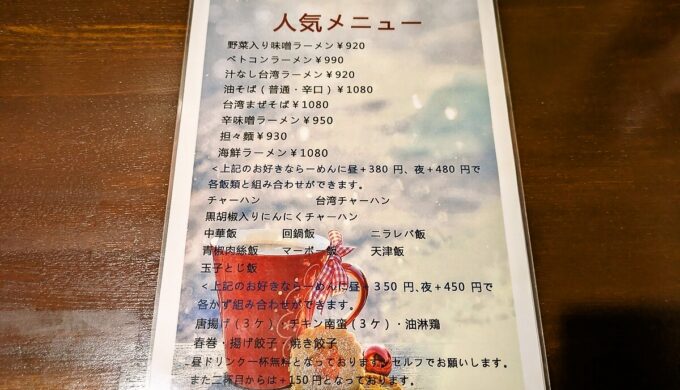 人気メニュー
野菜入り味噌ラーメン￥920
ベトコンラーメン￥990
汁なし台湾ラーメン￥920
油そば（普通・辛口）￥1080
台湾まぜそば￥1080
辛味噌ラーメン￥950
担々麺￥930
海鮮ラーメン￥1080
＜上記のお好きならーめんに昼＋380 円、夜＋480 円で
各飯類と組み合わせができます。
チャーハン　台湾チャーハン
黒胡椒入りにんにくチャーハン
中華飯　回鍋飯　ニラレバ飯
青椒肉絲飯　マーボー飯　天津飯
玉子とじ飯
＜上記のお好きならーめんに昼＋350 円、夜＋450 円で
各おかず組み合わせができます。
唐揚げ（3ケ）・チキン南蛮（3ケ）・油淋鶏
春巻・揚げ餃子・焼き餃子
昼ドリンク一杯無料となっております。セルフでお願いします。
また二杯目からは＋150円となっております。